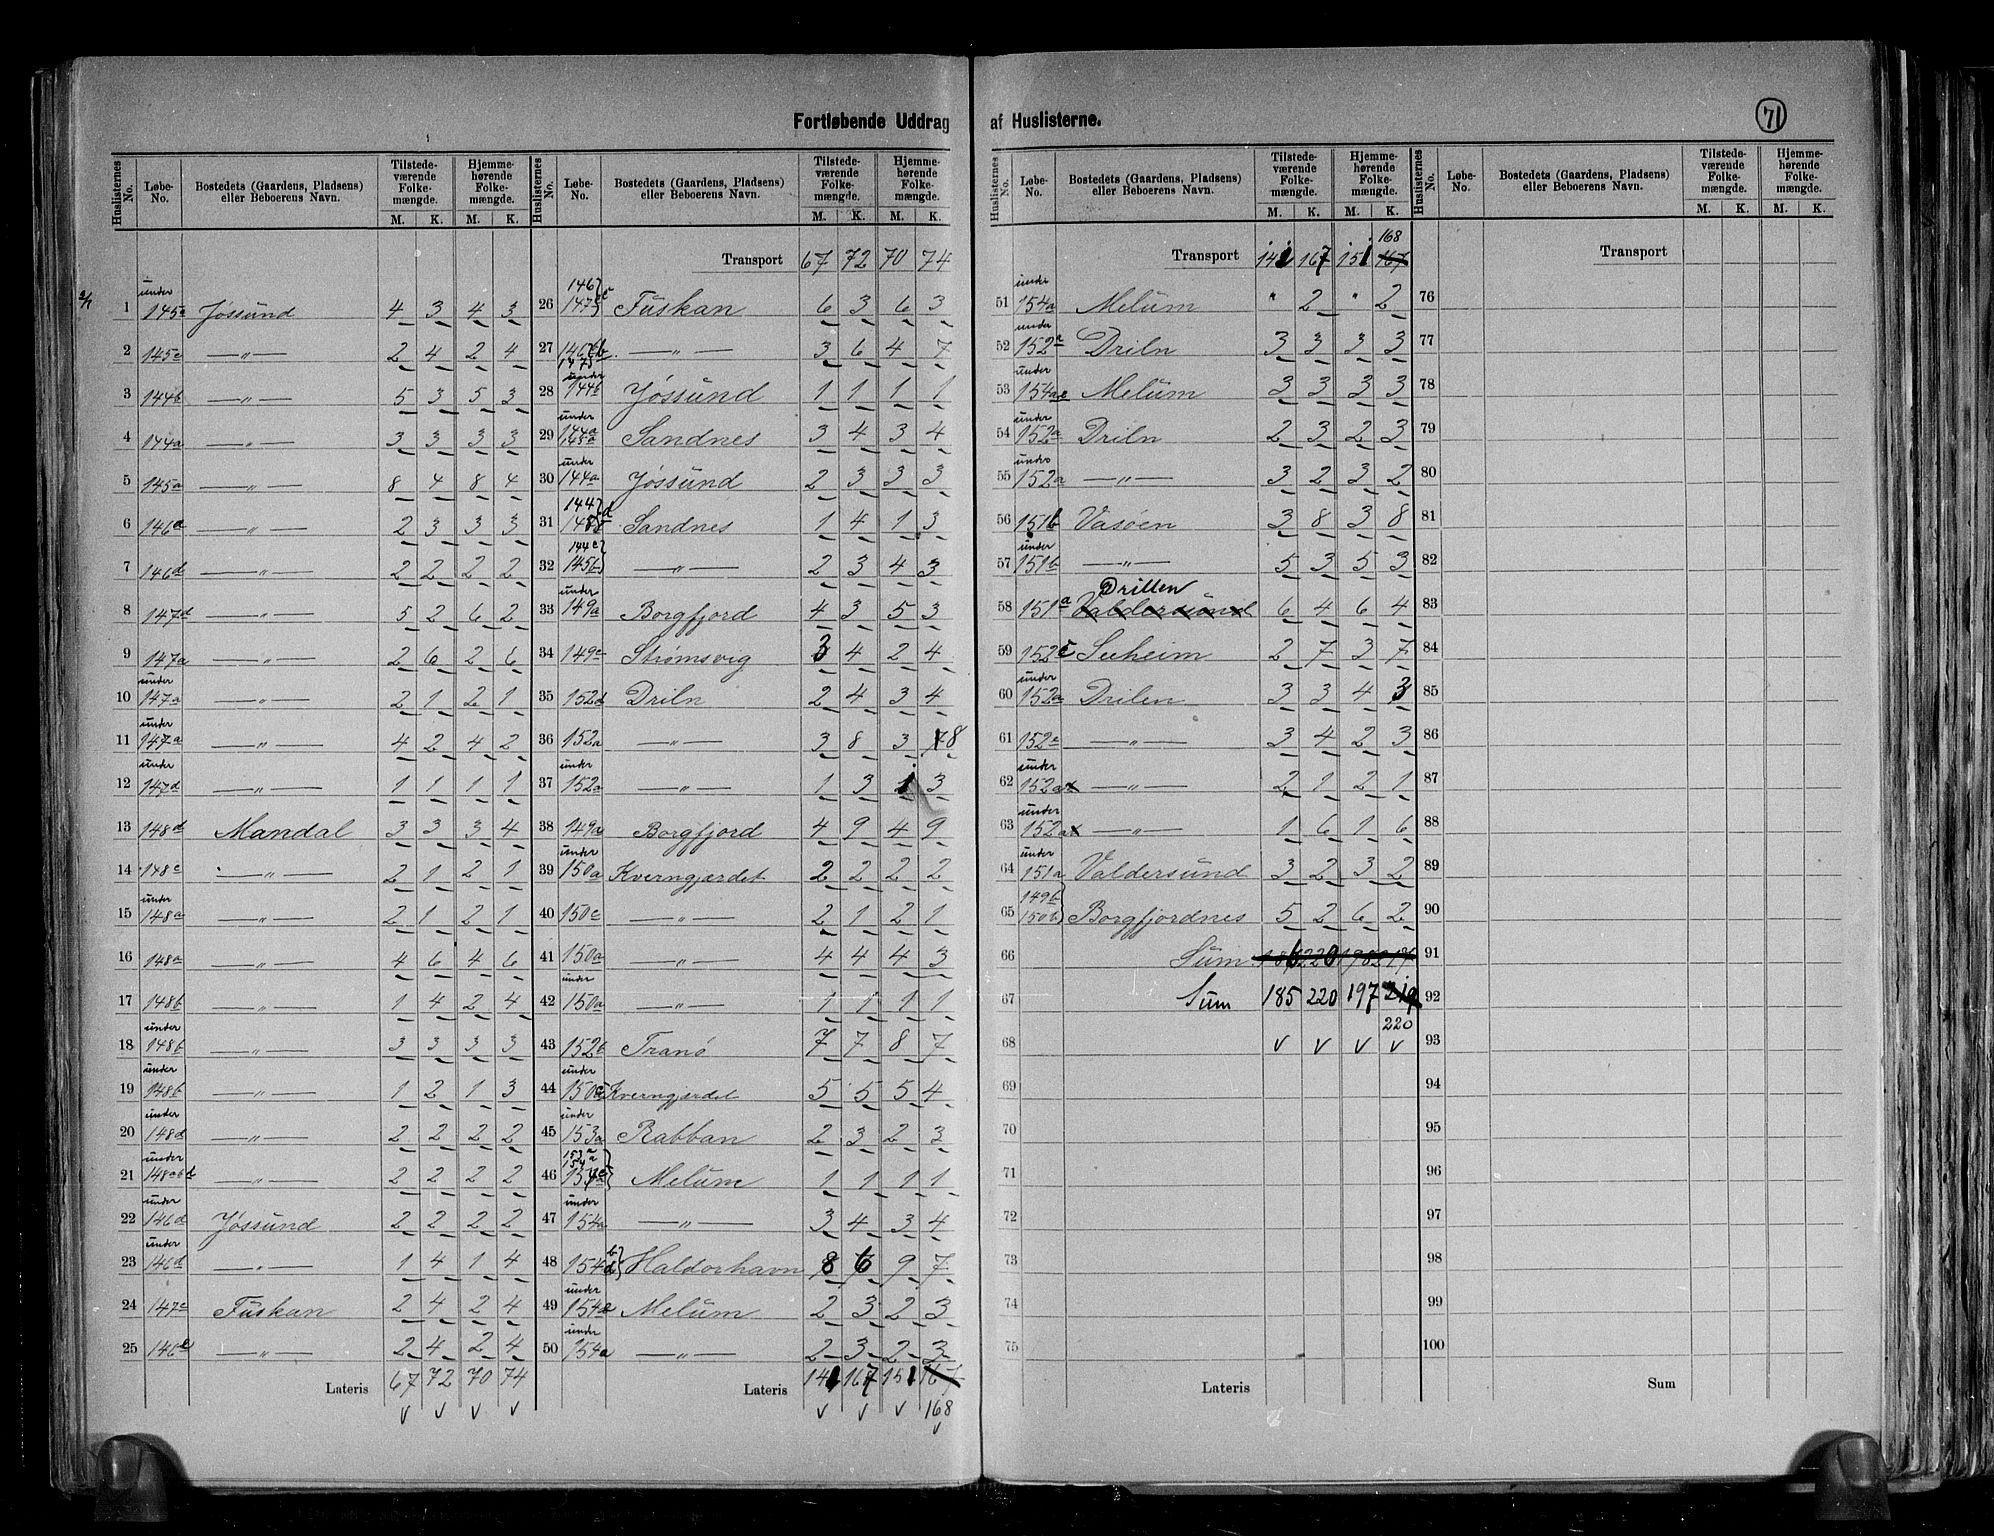 Fortløbende Uddrag af Huslisterne.
71
Huslisternes No. Løbe-No. Bostedets (Gaardens, Pladsens) eller Beboerens Navn. Tilstedeværende Folkemængde. M. K. Hjemmehørende Folkemængde. M. K.
1 under 145a Jøssund 4 3 4 3
2 145c —„— 2 4 2 4
3 144b —„— 5 3 5 3
4 144a —„— 3 3 3 3
5 145a —„— 8 4 8 4
6 146a —„— 2 3 3 3
7 146d —„— 2 2 2 2
8 147d —„— 5 2 6 2
9 147a —„— 2 6 2 6
10 under 147a —„— 2 1 2 1
11 under 147a —„— 4 2 4 2
12 under 147d —„— 1 1 1 1
13 148d Mandal 3 3 3 4
14 148c —„— 2 1 2 1
15 under 148a —„— 2 1 2 1
16 148a —„— 4 6 4 6
17 148b —„— 1 4 2 4
18 under 148b —„— 3 3 3 3
19 under 148b —„— 1 2 1 3
20 under 148d —„— 2 2 2 2
21 under —„— 2 2 2 2
22 under 146d Jøssund 2 2 2 2
23 under 146d —„— 1 4 1 4
24 147c Fuskan 2 4 2 4
25 146c —„— 2 4 2 4
Lateris 67 72 70 74
v v v v
Huslisternes No. Løbe-No. Bostedets (Gaardens, Pladsens) eller Beboerens Navn. Tilstedeværende Folkemængde. M. K. Hjemmehørende Folkemængde. M. K.
Transport 67 72 70 74
26 146 147 Fuskan 6 3 6 3
27 —„— 3 6 4 7
28 under 144b Jøssund 1 1 1 1
29 under 144a Sandnes 3 4 3 4
30 under 144a Jøssund 2 3 3 3
31 144 Sandnes 1 4 1 3
32 144c 145b —„— 2 3 4 3
33 under 149a Borgfjord 4 3 5 3
34 149c Strømsvig 3 4 2 4
35 152d Driln 2 4 3 4
36 152a —„— 3 8 3 8
37 under 152a —„— 1 3 1 3
38 149a Borgfjord 4 9 4 9
39 under 150a Kverngjærdet 2 2 2 2
40 150c —„— 2 1 2 1
41 150a —„— 4 4 4 3
42 under 150a —„— 1 1 1 1
43 152b Tranø 7 7 8 7
44 under 150c Kverngjærdet 5 5 5 4
45 under 153a Rabban 2 3 2 3
46 Melum 1 1 1 1
47 under 154a —„— 3 4 3 4
48 154 b d Haldorhavn 8 6 9 7
49 under 154a Melum 2 3 2 3
50 under 154a —„— 2 3 2 3
Lateris 141 167 151 167
v v v 168
v
Huslisternes No. Løbe-No. Bostedets (Gaardens, Pladsens) eller Beboerens Navn. Tilstedeværende Folkemængde. M. K. Hjemmehørende Folkemængde. M. K.
168
Transport 141 167 151 167
51 under 154a Melum " 2 " 2
52 under 152a Driln 3 3 3 3
53 under 154a Melum 3 3 3 3
54 under 152a Driln 2 3 2 3
55 under 152a —„— 3 2 3 2
56 151b Vasøen 3 8 3 8
57 under 151b —„— 5 3 5 3
Drillen
58 151a Valdersund 6 4 6 4
59 152c Seeheim 2 7 3 7
60 under 152a Drilen 3 3 4 3
61 152c —„— 3 4 2 3
62 under 152a —„— 2 1 2 1
63 under 152a —„— 1 6 1 6
64 under 151a Valdersund 3 2 3 2
65 149b 150b Borgfjordnes 5 2 6 2
66 Sum 186 220 198 217
67 Sum 185 220 197 219
220
68 v v v v
69
70
71
72
73
74
75
Lateris
Huslisternes No. Løbe-No. Bostedets (Gaardens, Pladsens) eller Beboerens Navn. Tilstedeværende Folkemængde. M. K. Hjemmehørende Folkemængde. M. K.
Transport
76
77
78
79
80
81
82
83
84
85
86
87
88
89
90
91
92
93
94
95
96
97
98
99
100
Sum